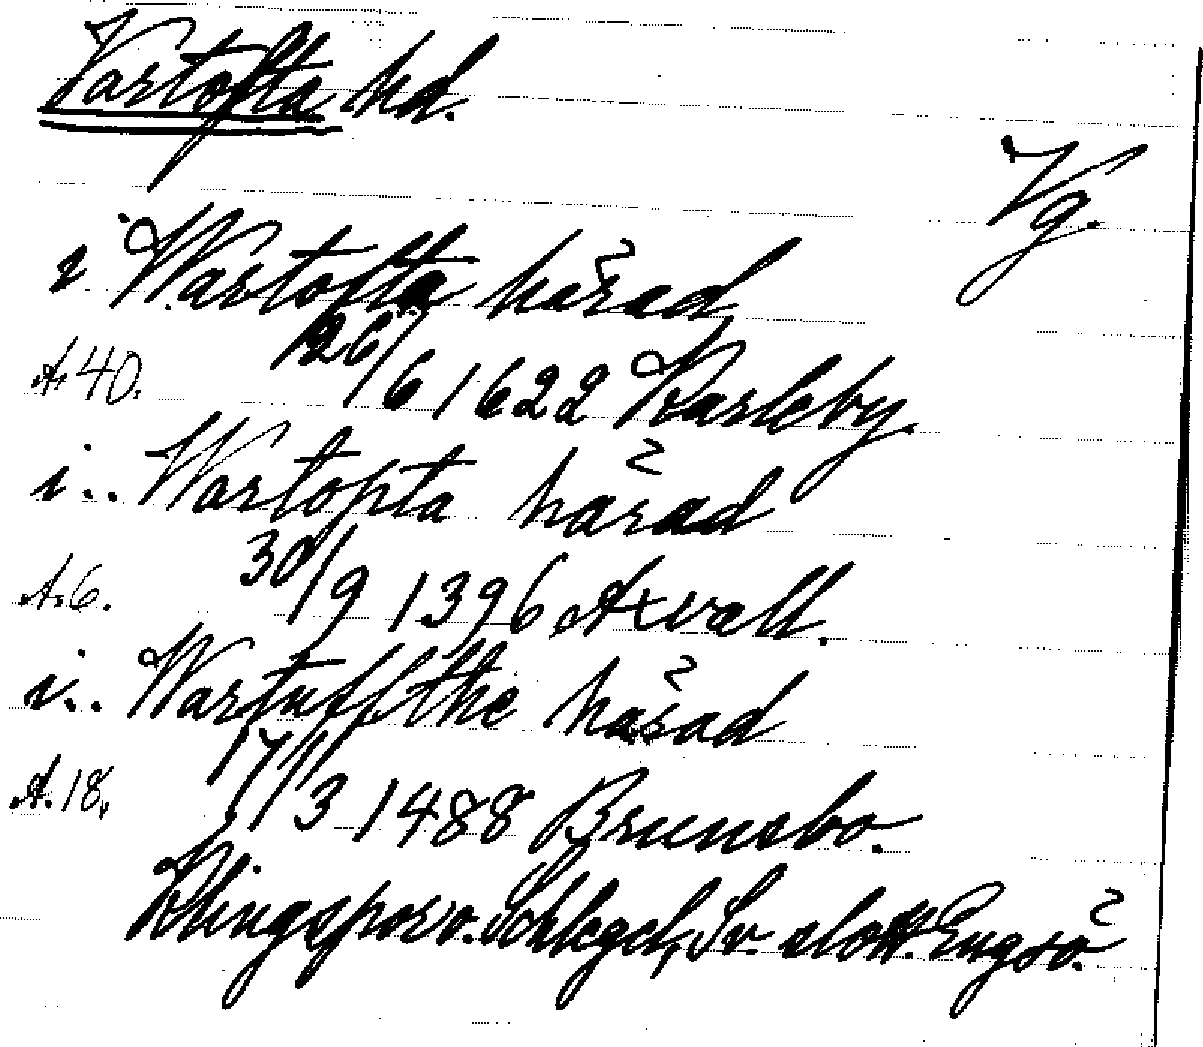 Vartofta hd.
Vg.
i Wartofta härad
A. 40. 26/6 1622 Karleby.
i.. Wartopta härad
A. 6. 30/9 1396 Axvall.
i.. Wartuffthe härad
A. 18. 17/3 1488 Brunsbo.
Klingspor o. Schlegel, Sv. slott. Engsö.